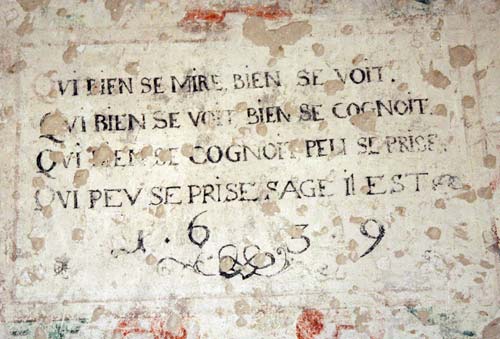 QVI BIEN SE MIRE, BIEN SE VOIT.
QVI BIEN SE VOIT BIEN SE COGNOIT.
QVI BIEN SE COGNOIT PEU SE PRISE.
QVI PEV SE PRISE SAGE Il EST
1.639